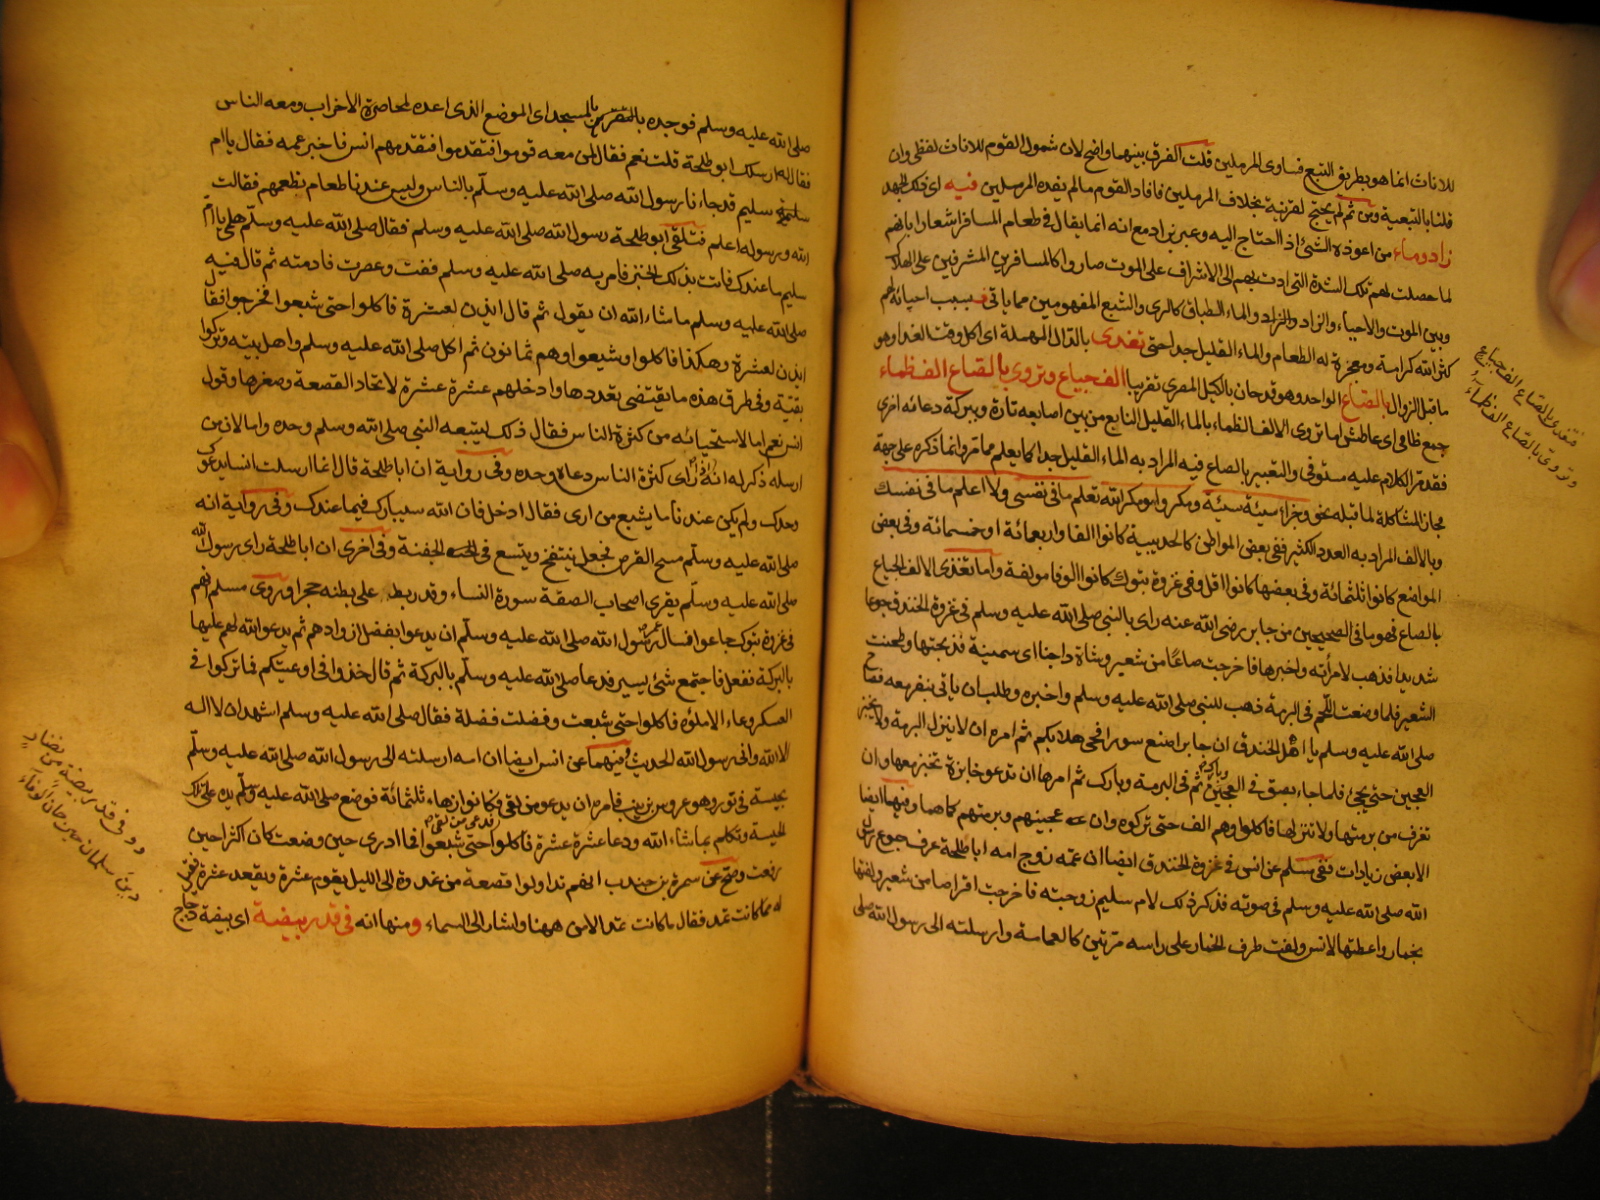 للاناث انما هو بطريق التبع فساوى المرملين قلت الفرق بينهما واضح لان شمول القوم للاناث لفظى وان
قلنا بالتبعية ومن ثم لم يحتج لقرنية بخلاف المرملين فافاد القوم مالم يفده المرملين فيه اى ذلك الجهد
زاد وماء من اعوذه الشئ اذا احتاج اليه وعبر بزاد مع انه انما يقال فى طعام المسافر اشعارا بانهم
لما حصلت لهم تلك الشدة التى ادت بهم الى الاشراف على الموت صاروا كالمسافرين المشرفين على الهلاك
وبين الموت والاحياء والزاد والزاد والماء الطباق كالرى والشبع المفهومين مما ياتى فبسبب احيائه لهم
كثر الله كرامة ومعجزة له الطعام والماء القليل جدا حتى تغدى بالدال المهملة اى اكل وقت الغدا وهو
ما قبل الزوال بالصاع الواحد وهو قدحان بالكيل المصرى تقريبا الف جياع وتروى بالصاع الف ظماء
جمع ظامى اى عاطش اما تروى الالف الظماء بالماء القليل النابع من بين اصابعه تارة وببركة دعائه اخرى
فقد مر الكلام عليه مستوفى والتعبير بالصاع فيه المراد به الماء القليل جدا كما يعلم مما مر وانما ذكره على جهة
مجاز المشاكلة لما قبله نحو وجزاء سيئة سيئة ومكروا ومكر الله تعلم ما فى نفسى ولا اعلم ما فى نفسك
وبالالف المراد به العدد الكثير ففى بعض المواطن كالحديبية كانوا الفا واربعمائة او خمسمائة وفى بعض
المواضع كانوا ثلثمائة وفى بعضها كانوا اقل وفى غزوة تبوك كانوا الوفا مولفة واما تغذى الالف الجياع
بالصاع فهو ما فى الصحيحين من جابر رضى الله عنه راى بالنبى صلى الله عليه وسلم فى غزوة الخندق جوعا
شديدا فذهب لامرأته واخبرها فاخرجت صاعا من شعير وشاة داجنا اى سمينة فذبحتها وطحنت
الشعير فلما وضعت اللحم فى البرمة ذهب للنبى صلى الله عليه وسلم واخبره وطلب ان ياتى بنفر معه فصاح
صلى الله عليه وسلم يا اهل الخندق ان جابر اصنع سورا فحى هلا بكم ثم امره ان لا ينزل البرمة ولا يخبز
العجين حتى يجئ فلما جاء بصق فى العجين وبارك ثم فى البرمة وبارك ثم امرها ان تدعو خابزة تخبز معها وان
تغرف من برمتها ولا تنزلها فاكلوا وهم الف حتى تركوه وان عجينهم وبرمتهم كما هما ومنها ايضا
الا بعض زيادات ففى مسلم عن انس فى غزوة الخندق ايضا ان عمه زوج امه ابا طلحة عرف جوع رسول
الله صلى الله عليه وسلم فى صوته فذكر ذلك لام سليم زوجته فاخرجت اقراصا من شعير ولفتها
بخمار واعطتها لانس ولفت طرف الخمار على راسه مرتين كالعمامة وارسلته الى رسول الله صلى
فتغدى بالصاع الف جياع
وتروى بالصاع الف ظماء
صلى الله عليه وسلم فوجده بالمسجد اى الموضع الذى اعده لمحاصرة الاحزاب ومعه الناس
فقال له ارسلك ابو طلحة قلت نعم فقال لمن معه قوموا فتقدموا فتقدمهم انس فاخبر عمه فقال يا ام
سليم قد جاءنا رسول الله صلى الله عليه وسلم بالناس وليس عندنا طعام نطعمهم فقالت
الله ورسوله اعلم فتلقى ابو طلحة رسول الله صلى الله عليه وسلم فقال صلى الله عليه وسلم هلمى يا ام
سليم ما عندك فاتت بذلك الخبز فامر به صلى الله عليه وسلم ففت وعصرت فادمته ثم قال فيه
صلى الله عليه وسلم ما شاء الله ان يقول ثم قال ايذن لعشرة فاكلوا حتى شبعوا فخرجوا فقال
ايذن لعشرة وهكذا فاكلوا وشبعوا وهم ثمانون ثم اكل صلى الله عليه وسلم واهل بيته وتركوا
بقية وفى طرق هذه ما يقتضى تعددها وادخلهم عشرة عشرة لاتحاد القصعة وصغرها وقول
انس نعم اما لاستحيائه من كثرة الناس فقال ذلك ليتبعه النبى صلى الله وسلم وحده واما لان من
ارسله ذكر له انه ان راى كثرة الناس دعاه وحده وفى رواية ان ابا طلحة قال انما ارسلت انسا يدعوك
وحدك ولم يكن عندنا ما يشبع من ارى فقال ادخل فان الله سيبارك فيما عندك وفى رواية انه
صلى الله عليه وسلم مسح القرص فجعل ينتفخ ويتسع فى الجفنة وفى اخرى ان ابا طلحة راى رسول الله
صلى الله عليه وسلم يقرى اصحاب الصفة سورة النساء وقد ربط على بطنه حجرا وروى مسلم انهم
فى غزوة تبوك جاعوا فسال عمر رسول الله صلى الله عليه وسلم ان يدعوا بفضل ازوادهم ثم يدعو الله لهم عليها
بالبركة ففعل فاجتمع شئ يسير فدعا صلى الله عليه وسلم بالبركة ثم قال خذوا فى اوعيتكم فما تركوا فى
العسكر وعاء الا ملؤه فاكلوا حتى شبعت وفضلت فضلة فقال صلى الله عليه وسلم اشهد ان لا اله
الا الله وانى رسول الله الحديث وفيهما عن انس ايضا ان امه ارسلته الى رسول الله صلى الله عليه وسلم
بحيسة فى تور وهو عروس بزينب فامره ان يدعو من لقى فكانوا زهاء ثلثمائة فوضع صلى الله عليه وسلم يده على تلك
الحيسة وتكلم بما شاء الله ودعا عشرة عشرة فاكلوا حتى شبعوا فما ادرى حين وضعت كان اكثر ام حين
رفعت وصح عن سمرة بن جندب انهم تداولوا قصعة من غدوة الى الليل يقوم عشرة ويقعد عشرة فقيل
له مما كانت تمد فقال ما كانت تمد الا من ههنا واشار الى السماء ومنها انه فى قدر بيضة اى بيضة دجاج
ووفى قدر بيضة من نضار
دين سلمان حين حان الوفاء